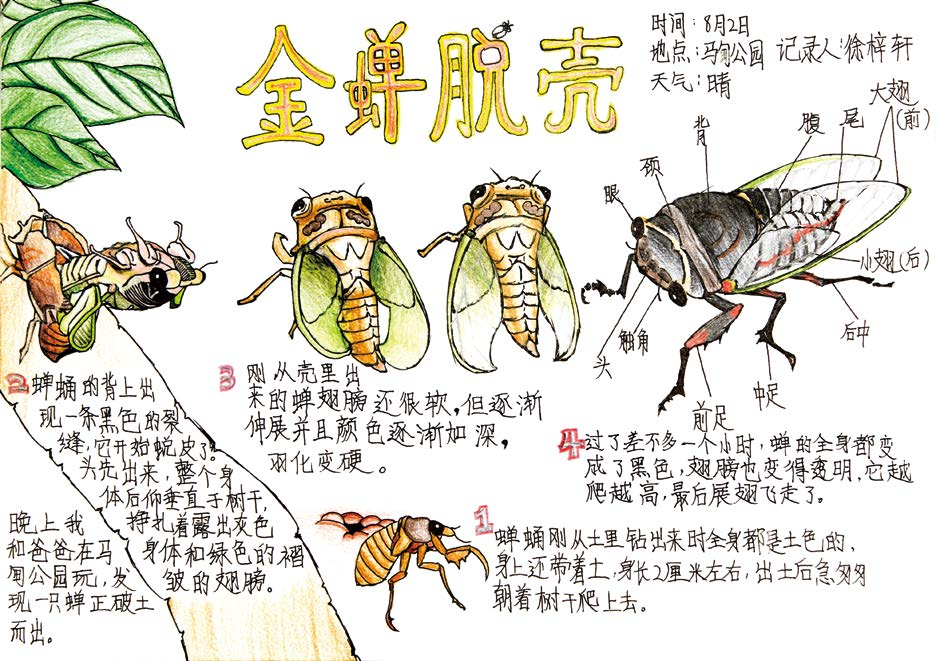 金蝉脱壳
时间：8月2日
地点：马甸公园 记录人：徐梓轩
天气：晴
大翅
(前)
背
腹
尾
颈
眼
小翅(后)
触角
头
后中
中足
前足
晚上我
和爸爸在马
甸公园玩，发
现一只蝉正破土
而出。
1
蝉蛹刚从土里钻出来时全身都是土色的，
身上还带着土，身长2厘米左右，出土后急匆匆
朝着树干爬上去。
2 蝉蛹的背上出
现一条黑色的裂
缝，它开始蜕皮了。
头先出来，整个身
体后仰垂直于树干，
挣扎着露出灰色
身体和绿色的褶
皱的翅膀。
3 刚从壳里出
来的蝉翅膀还很软，但逐渐
伸展并且颜色逐渐加深，
羽化变硬。
4 过了差不多一个小时，蝉的全身都变
成了黑色，翅膀也变得透明，它越
爬越高，最后展翅飞走了。